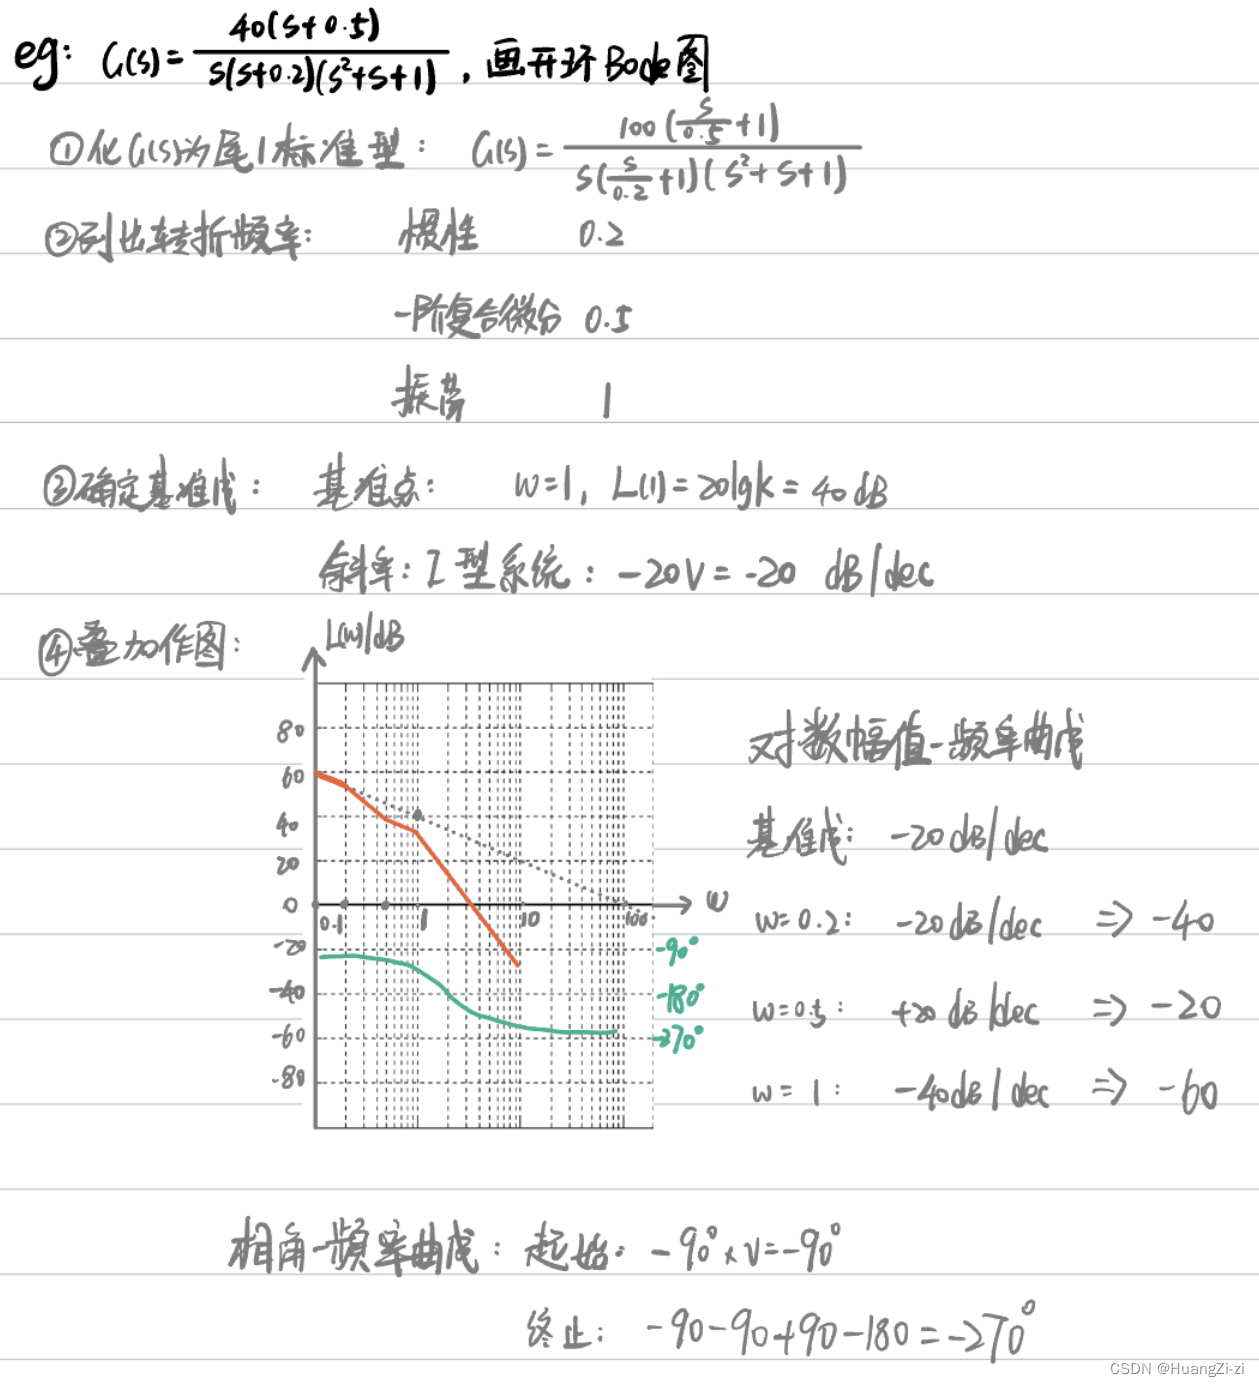 eg: G(s)=40(s+0.5)/s(s+0.2)(s²+s+1)，画开环Bode图
①化G(s)为尾1标准型： G(s)=100(s/0.5+1)/s(s/0.2+1)(s²+s+1)
②列出转折频率： 惯性 0.2
一阶复合微分 0.5
振荡 1
③确定基准线： 基准点： w=1, L(1)=20lgk=40dB
斜率：I型系统：-20V=-20 dB/dec
④叠加作图：
L(w)/dB
80
60
40
20
0
-20
-40
-60
-80
0.1 1 10 100 w
-90°
-180°
-270°
对数幅值-频率曲线
基准线： -20dB/dec
w=0.2: -20dB/dec => -40
w=0.5: +20dB/dec => -20
w=1: -40dB/dec => -60
相角-频率曲线：起始：-90°×V=-90°
终止： -90-90+90-180=-270°
CSDN @HuangZi-zi